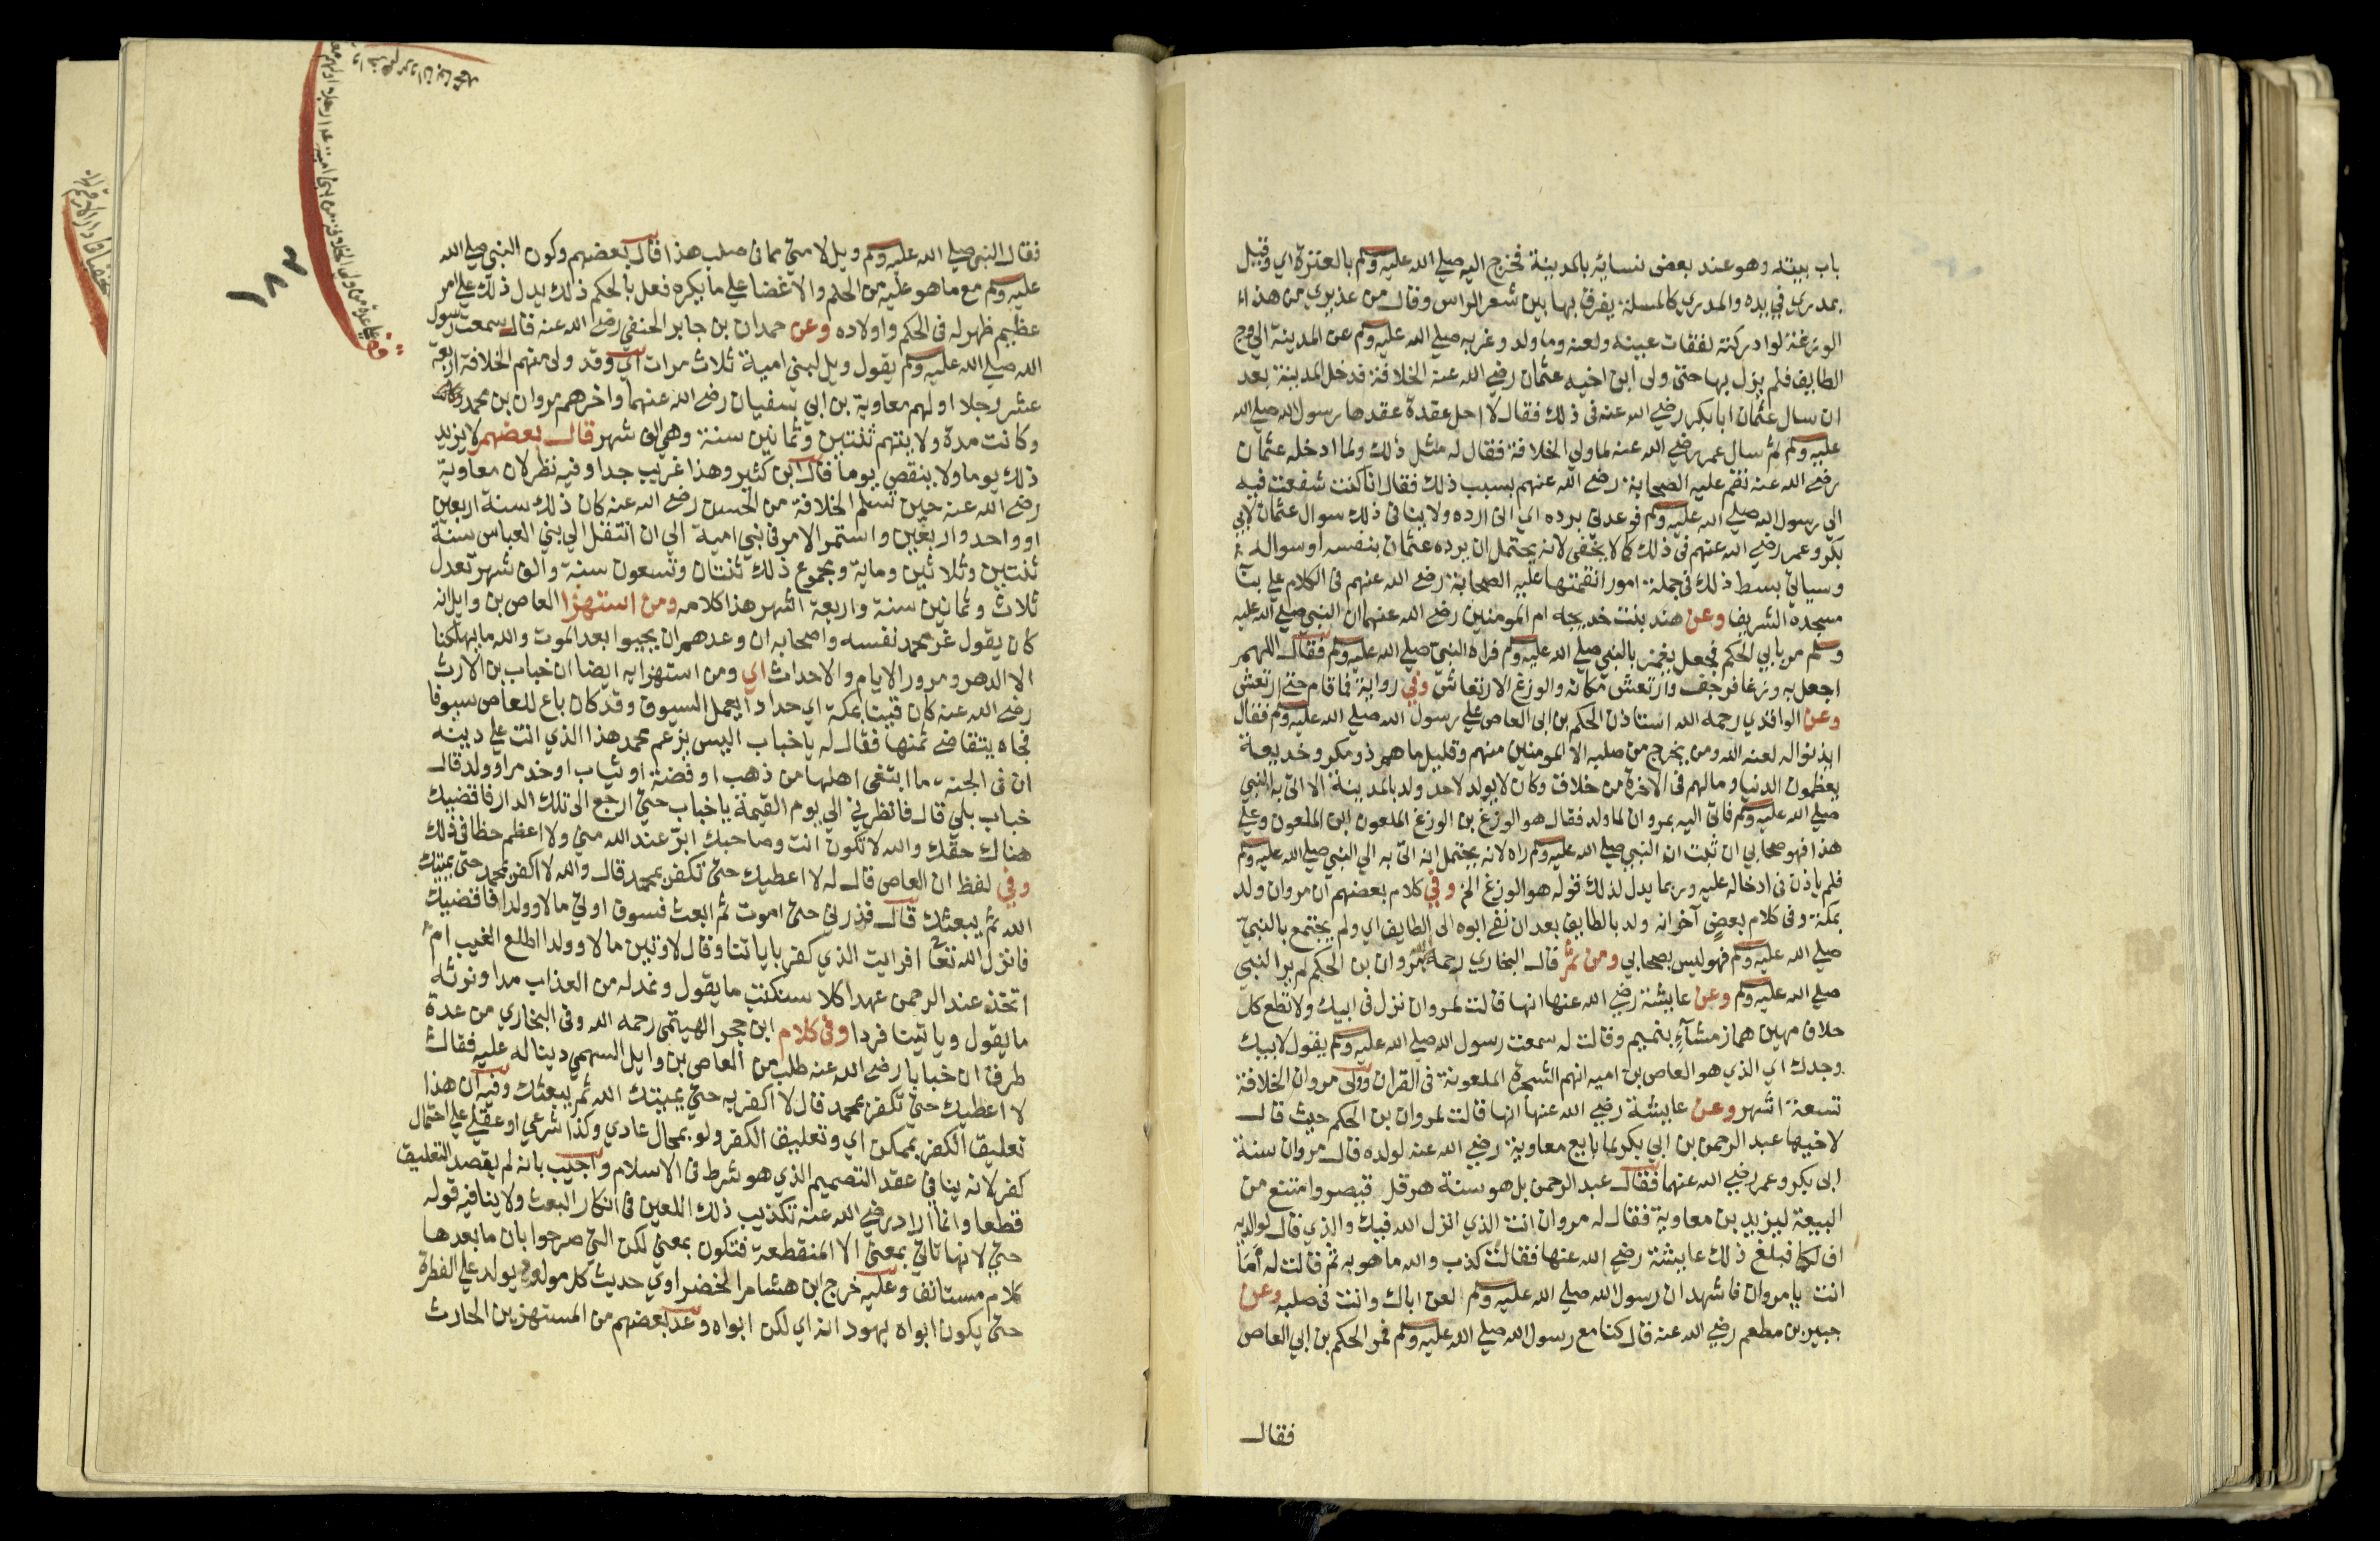 باب بيته وهو عند بعض نسائه بالمدينة فخرج اليه صلي الله عليه وسلم بالعنزة اي وقيل
بمدري في يده والمدري كالمسلة يفرق بها بين شعر الراس وقال من عذيري من هذه
الوزغة لو ادركته لفقات عينه ولعنه وما ولد وغربه صلي الله عليه وسلم عن المدينة الي وج
الطايف فلم يزل بها حتى ولى ابن اخيه عثمان رضي الله عنه الخلافة فدخل المدينة بعد
ان سال عثمان ابا بكر رضي الله عنه في ذلك فقال لا احل عقدة عقدها رسول الله صلي الله
عليه وسلم ثم سال عمر رضي الله عنه لما ولي الخلافة فقال له مثل ذلك ولما ادخله عثمان
رضي الله عنه نقم عليه الصحابة رضي الله عنهم بسبب ذلك فقال انا كنت شفعت فيه
الي رسول الله صلي الله عليه وسلم فوعدني برده اي اني ارده ولا ينافي ذلك سوال عثمان لابي
بكر وعمر رضي الله عنهم في ذلك كما لا يخفى لانه يحتمل ان يرده عثمان بنفسه او سواله
وسياتي بسط ذلك في جملة امور انقمتها عليه الصحابة رضي الله عنهم في الكلام علي بنا
مسجده الشريف وعن هند بنت خديجه ام المومنين رضي الله عنهما ان النبي صلي الله عليه
وسلم مر بابي الحكم فجعل يغمز بالنبي صلي الله عليه وسلم فراه النبي صلي الله عليه وسلم فقال اللهم
اجعل به وزغا فرجف وارتعش مكانه والوزغ الارتعاش وفي رواية فما قام حتى ارتعش
وعن الواقدي رحمه الله استاذن الحكم بن ابي العاص علي رسول الله صلي الله عليه وسلم فقال
ايذنوا له لعنه الله ومن يخرج من صلبه الا المومنين منهم وقليل ما هم ذو مكر وخديعة
يعظمون الدنيا وما لهم في الاخرة من خلاق وكان لا يولد لاحد ولد بالمدينة الا اتى به النبي
صلي الله عليه وسلم فاتى اليه بمروان لما ولد فقال هو الوزغ بن الوزغ الملعون ابن الملعون وعلي
هذا فهو صحابي ان ثبت ان النبي صلي الله عليه وسلم راه لانه يحتمل انه اتى به الي النبي صلي الله عليه وسلم
فلم ياذن في ادخاله عليه وربما يدل لذلك قوله هو الوزغ الخ وفي كلام بعضهم ان مروان ولد
بمكة وفي كلام بعض آخر انه ولد بالطايف بعد ان نفي ابوه الى الطايف اي ولم يجتمع بالنبي
صلي الله عليه وسلم فهو ليس بصحابي ومن ثم قال البخاري رحمه الله مروان بن الحكم لم ير النبي
صلي الله عليه وسلم وعن عايشة رضي الله عنها انها قالت لمروان نزل في ابيك ولا تطع كل
حلاف مهين هماز مشآء بنميم وقالت له سمعت رسول الله صلي الله عليه وسلم يقول لابيك
وجدك اي الذي هو العاص بن اميه انهم الشجرة الملعونة في القران وولى مروان الخلافة
تسعة اشهر وعن عايشة رضي الله عنها انها قالت لمروان بن الحكم حيث قال
لاخيها عبد الرحمن بن ابي بكر لما بايع معاوية رضي الله عنه لولده قال مروان سنة
ابي بكر وعمر رضي الله عنهما فقال عبد الرحمن بل هو سنة هرقل قيصر وامتنع من
البيعة ليزيد بن معاوية فقال له مروان انت الذي انزل الله فيك والذي قال لوالديه
اف لكما فبلغ ذلك عايشة رضي الله عنها فقالت كذب والله ما هو به ثم قالت له اما
انت يا مروان فاشهد ان رسول الله صلي الله عليه وسلم لعن اباك وانت في صلبه وعن
جبير بن مطعم رضي الله عنه قال كنا مع رسول الله صلي الله عليه وسلم فمر الحكم بن ابي العاص
فقال
فقال النبي صلي الله عليه وسلم ويل لامتي مما في صلب هذا قال بعضهم وكون النبي صلي الله
عليه وسلم مع ما هو عليه من الحلم والاغضا علي ما يكره فعل بالحكم ذلك يدل ذلك علي امر
عظيم ظهر له في الحكم واولاده وعن حمدان بن جابر الحنفي رضي الله عنه قال سمعت رسول
الله صلي الله عليه وسلم يقول ويل لبني امية ثلاث مرات اي وقد ولى منهم الخلافة اربعة
عشر رجلا اولهم معاوية بن ابي سفيان رضي الله عنهما واخرهم مروان بن محمد
وكانت مدة ولايتهم ثنتين وثمانين سنة وهي الف شهر قال بعضهم لا يزيد
ذلك يوما ولا ينقص يوما قال ابن كثير وهذا غريب جدا وفيه نظر لان معاوية
رضي الله عنه حين تسلم الخلافة من الحسن رضي الله عنه كان ذلك سنة اربعين
او واحد واربعين واستمر الامر في بني امية الي ان انتقل الي بني العباس سنة
ثنتين وثلاثين وماية ومجموع ذلك ثنتان وتسعون سنة والف شهر تعدل
ثلاث وثمانين سنة واربعة اشهر هذا كلامه ومن استهزا العاص بن وايل انه
كان يقول غر محمد نفسه واصحابه ان وعدهم ان يحيوا بعد الموت والله ما يهلكنا
الا الدهر ومرور الايام والاحداث اي ومن استهزايه ايضا ان خباب بن الارث
رضي الله عنه كان قينا بمكة اي حدادا يعمل السيوف وقد كان باع للعاص سيوفا
فجاه يتقاضي ثمنها فقال له يا خباب اليس يزعم محمد هذا الذي انت علي دينه
ان في الجنة ما ابتغى اهلها من ذهب او فضة او ثياب او خدم او ولد قال
خباب بلي قال فانظرني الي يوم القيمة يا خباب حتى ارجع الى تلك الدار فاقضيك
هناك حقك والله لا تكون انت وصاحبك ابرّ عند الله مني ولا اعظم حظا في ذلك
وفي لفظ ان العاص قال له لا اعطيك حتى تكفر بمحمد قال والله لا اكفر بمحمد حتى يميتك
الله ثم يبعثك قال فذرني حتى اموت ثم ابعث فسوف اوتي مالا وولدا فاقضيك
فانزل الله تعا افرايت الذي كفر باياتنا وقال لاوتين مالا وولدا اطلع الغيب ام
اتخذ عند الرحمن عهدا كلا سنكتب ما يقول ونمد له من العذاب مدا ونرثه
ما يقول وياتينا فردا وفي كلام ابن حجر الهيتمى رحمه الله وفي البخاري من عدة
طرق ان خبابا رضي الله عنه طلب من العاص بن وايل السهمي دينا له عليه فقال
لا اعطيك حتى تكفر بمحمد قال لا اكفر به حتى يميتك الله ثم يبعثك وفيه ان هذا
تعليق الكفر بممكن اي وتعليق الكفر ولو بمحال عادي وكذا شرعي او عقلي علي احتمال
كفر لانه ينافي عقد التصميم الذي هو شرط في الاسلام واجيب بانه لم يقصد التعليق
قطعا وانما اراد رضي الله عنه تكذيب ذلك اللعين في انكار البعث ولا ينافيه قوله
حتى لانها تاتي بمعنى الا المنقطعة فتكون بمعنى لكن التي صرحوا بان ما بعدها
كلام مستانف وعليه خرج ابن هشام الخضراوي حديث كل مولود يولد علي الفطرة
حتى يكون ابواه يهودانه اي لكن ابواه وعد بعضهم من المستهزين الحارث
١٨٣